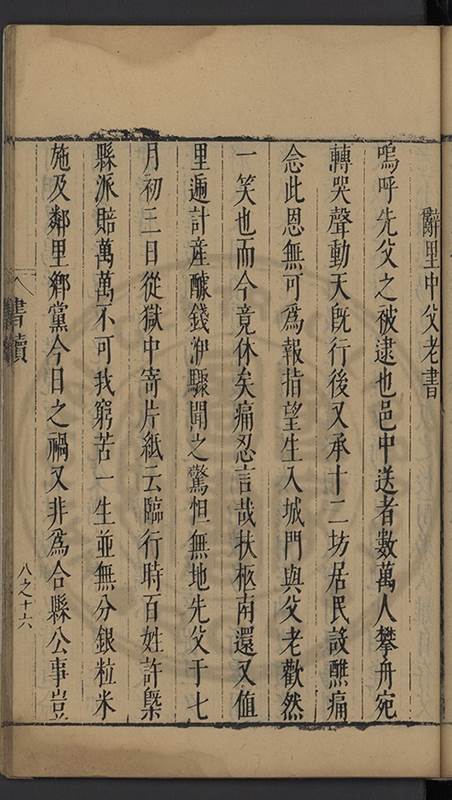 辭里中父老書
嗚呼先父之被逮也邑中送者數萬人攀舟宛
轉哭聲動天旣行後又承十二坊居民設醮痛
念此恩無可爲報指望生入城門與父老歡然
一笑也而今竟休矣痛忍言哉扶柩南還又値
里遞計產醵錢洊驟聞之驚怛無地先父于七
月初三日從獄中寄片紙云臨行時百姓許槩
縣派賠萬萬不可我窮苦一生並無分銀粒米
施及鄰里鄉黨今日之禍又非爲合縣公事豈
書牘
八之十六